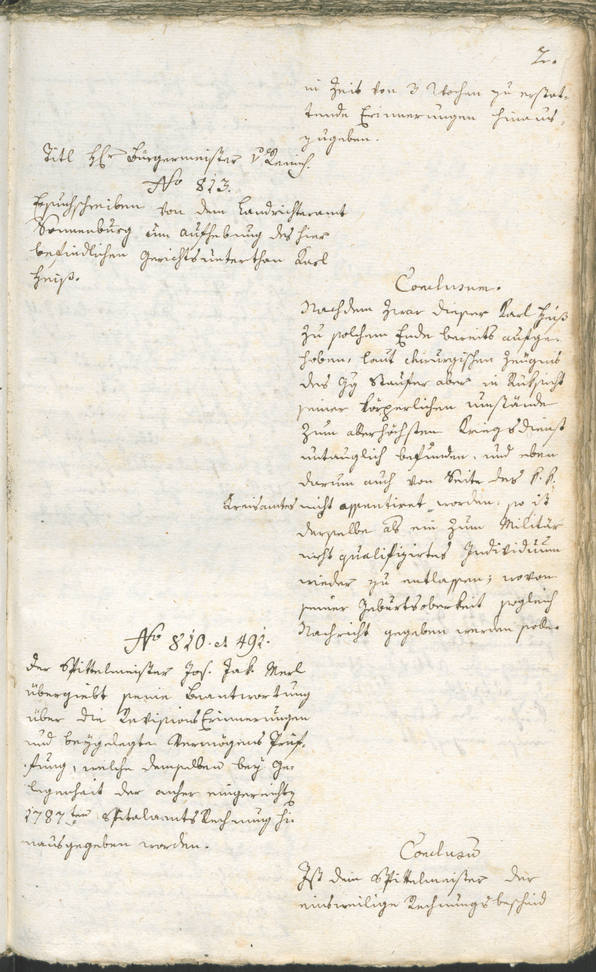 2.
in Zeit von 3 Wochen zu erstat-
tende Erinnerungen hinaus-
zugeben.
Titl H: Bürgermeister v
No 813.
Ersuchschreiben von dem Landrichteramt
Sonnenburg um Aufhebung des hier
befindlichen Gerichtsunterthan Karl
Heiß.
Conclusum.
Nachdem zwar dieser Karl Heiß
zu solchem Ende bereits aufge-
hoben, laut chirurgischen Zeugniß
des Staufer aber in Rüksicht
seiner körperlichen Umstände
zum allerhöchsten Kriegsdienst
untauglich befunden, und eben
darum auch von Seite des k. k.
Kreisamtes nicht assentiret worden, so ist
derselbe als ein zum Militär
nicht qualifizirtes Individuum
wieder zu entlassen; wovon
seiner Geburtsobrigkeit sogleich
Nachricht gegeben werden solle.
No 810. et 491.
Der Spittelmeister Jos. Jak. Merl
übergiebt seine Beantwortung
über die Revisions Erinnerungen
und beygelegte Vermögens Prüf-
fung, welche demselben bey Ge-
legenheit der anher eingereicht
1787ten Spitalamts Rechnung hi-
nausgegeben worden.
Conclusum
Ist dem Spittelmeister der
einsweilige Rechnungsbescheid